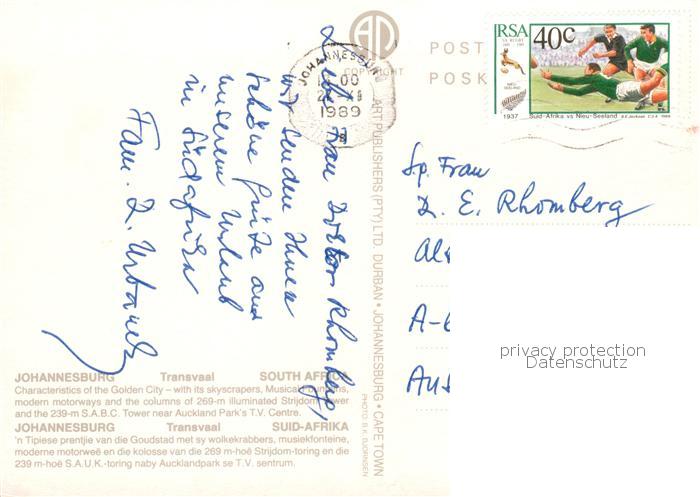 Liebe Frau Doktor Rhomberg,
wir senden Ihnen
schöne Grüße aus
unserem Urlaub
in Südafrika
Fam. Urbanek
JOHANNESBURG Transvaal SOUTH AFRICA
Characteristics of the Golden City – with its skyscrapers, Musical
modern motorways and the columns of 269-m illuminated Strijdom Tower
and the 239-m S.A.B.C. Tower near Auckland Park's T.V. Centre.
JOHANNESBURG Transvaal SUID-AFRIKA
'n Tipiese prentjie van die Goudstad met sy wolkekrabbers, musiekfonteine,
moderne motorweë en die kolosse van die 269 m-hoë Strijdom-toring en die
239 m-hoë S.A.U.K.-toring naby Aucklandpark se T.V. sentrum.
COPYRIGHT
ART PUBLISHERS (PTY) LTD. DURBAN • JOHANNESBURG • CAPE TOWN
PHOTO B.K. BJORNSEN
JOHANNESBURG
1989
POST
POSK
RSA
40c
NIEU-
SEELAND
1937 Suid-Afrika vs Nieu-Seeland
Sp. Frau
E. Rhomberg
privacy protection
Datenschutz